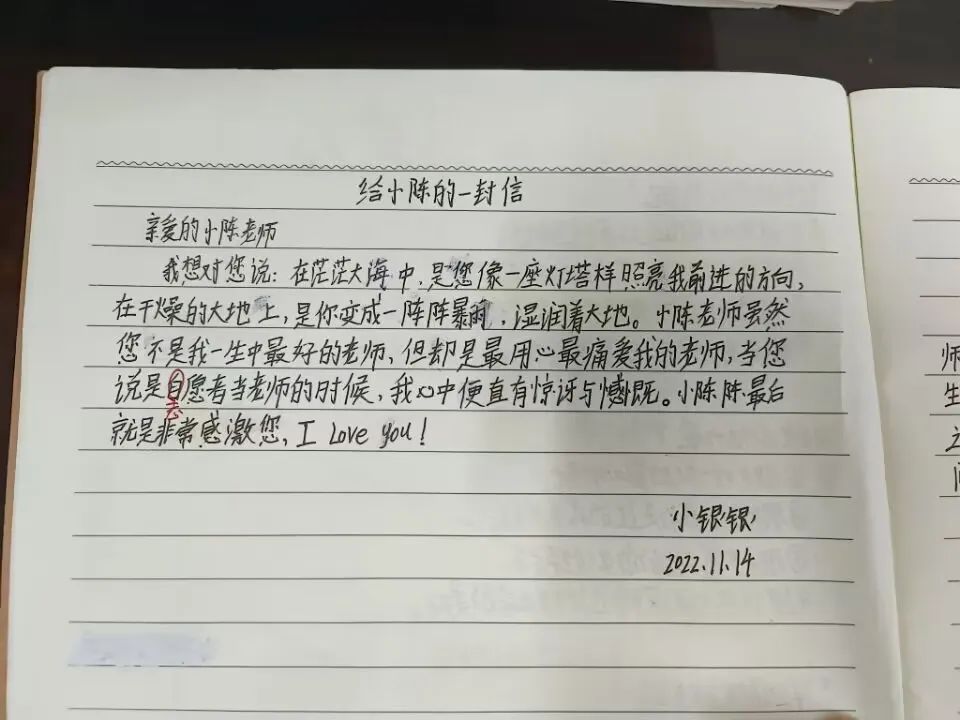 给小陈的一封信
亲爱的小陈老师
我想对您说：在茫茫大海中，是您像一座灯塔样照亮我前进的方向，
在干燥的大地上，是你变成一阵阵暴雨，湿润着大地。小陈老师虽然
您不是我一生中最好的老师，但却是最用心最痛爱我的老师，当您
说是自愿者当老师的时候，我心中便直有惊讶与感既。小陈陈最后
志
就是非常感激您，I Love you！
小银银
2022.11.14
师
生